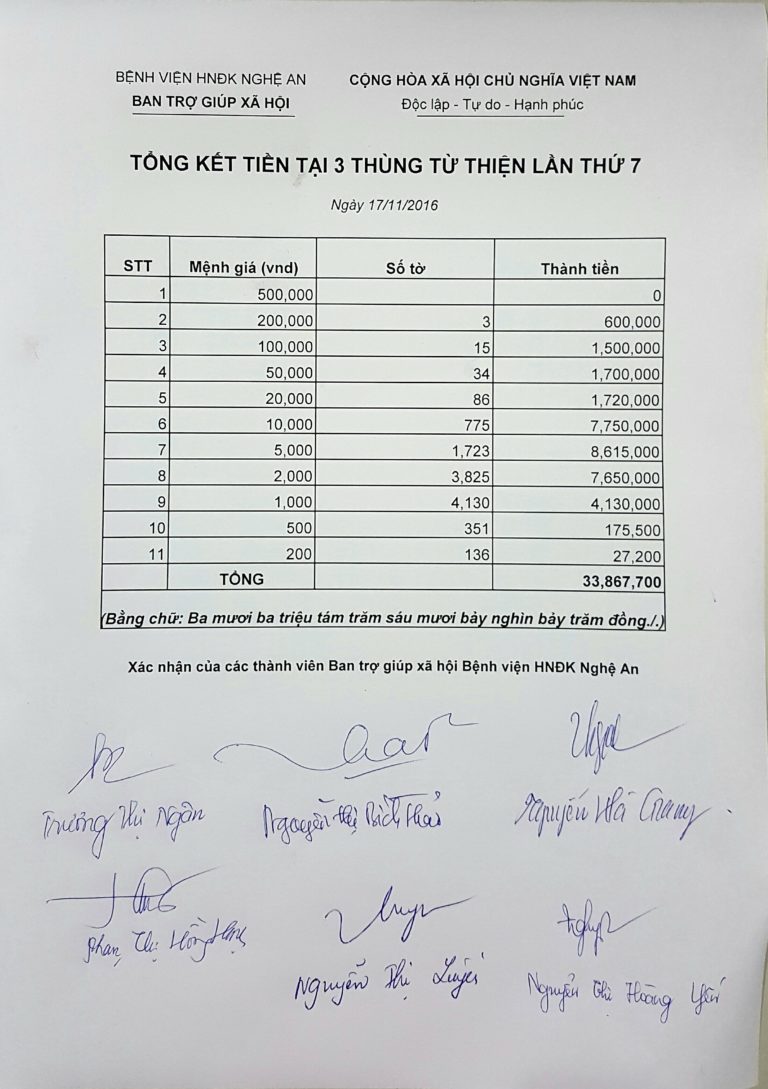 BỆNH VIỆN HNĐK NGHỆ AN
BAN TRỢ GIÚP XÃ HỘI
CỘNG HÒA XÃ HỘI CHỦ NGHĨA VIỆT NAM
Độc lập - Tự do - Hạnh phúc
TỔNG KẾT TIỀN TẠI 3 THÙNG TỪ THIỆN LẦN THỨ 7
Ngày 17/11/2016
STT Mệnh giá (vnd) Số tờ Thành tiền
1 500,000 0
2 200,000 3 600,000
3 100,000 15 1,500,000
4 50,000 34 1,700,000
5 20,000 86 1,720,000
6 10,000 775 7,750,000
7 5,000 1,723 8,615,000
8 2,000 3,825 7,650,000
9 1,000 4,130 4,130,000
10 500 351 175,500
11 200 136 27,200
TỔNG 33,867,700
(Bằng chữ: Ba mươi ba triệu tám trăm sáu mươi bảy nghìn bảy trăm đồng./.)
Xác nhận của các thành viên Ban trợ giúp xã hội Bệnh viện HNĐK Nghệ An
Trương Thị Ngân
Nguyễn Thị Bích Thảo
Nguyễn Hà Giang
Phan Thị Hồng
Nguyễn Thị
Nguyễn Thị Hoàng Yến